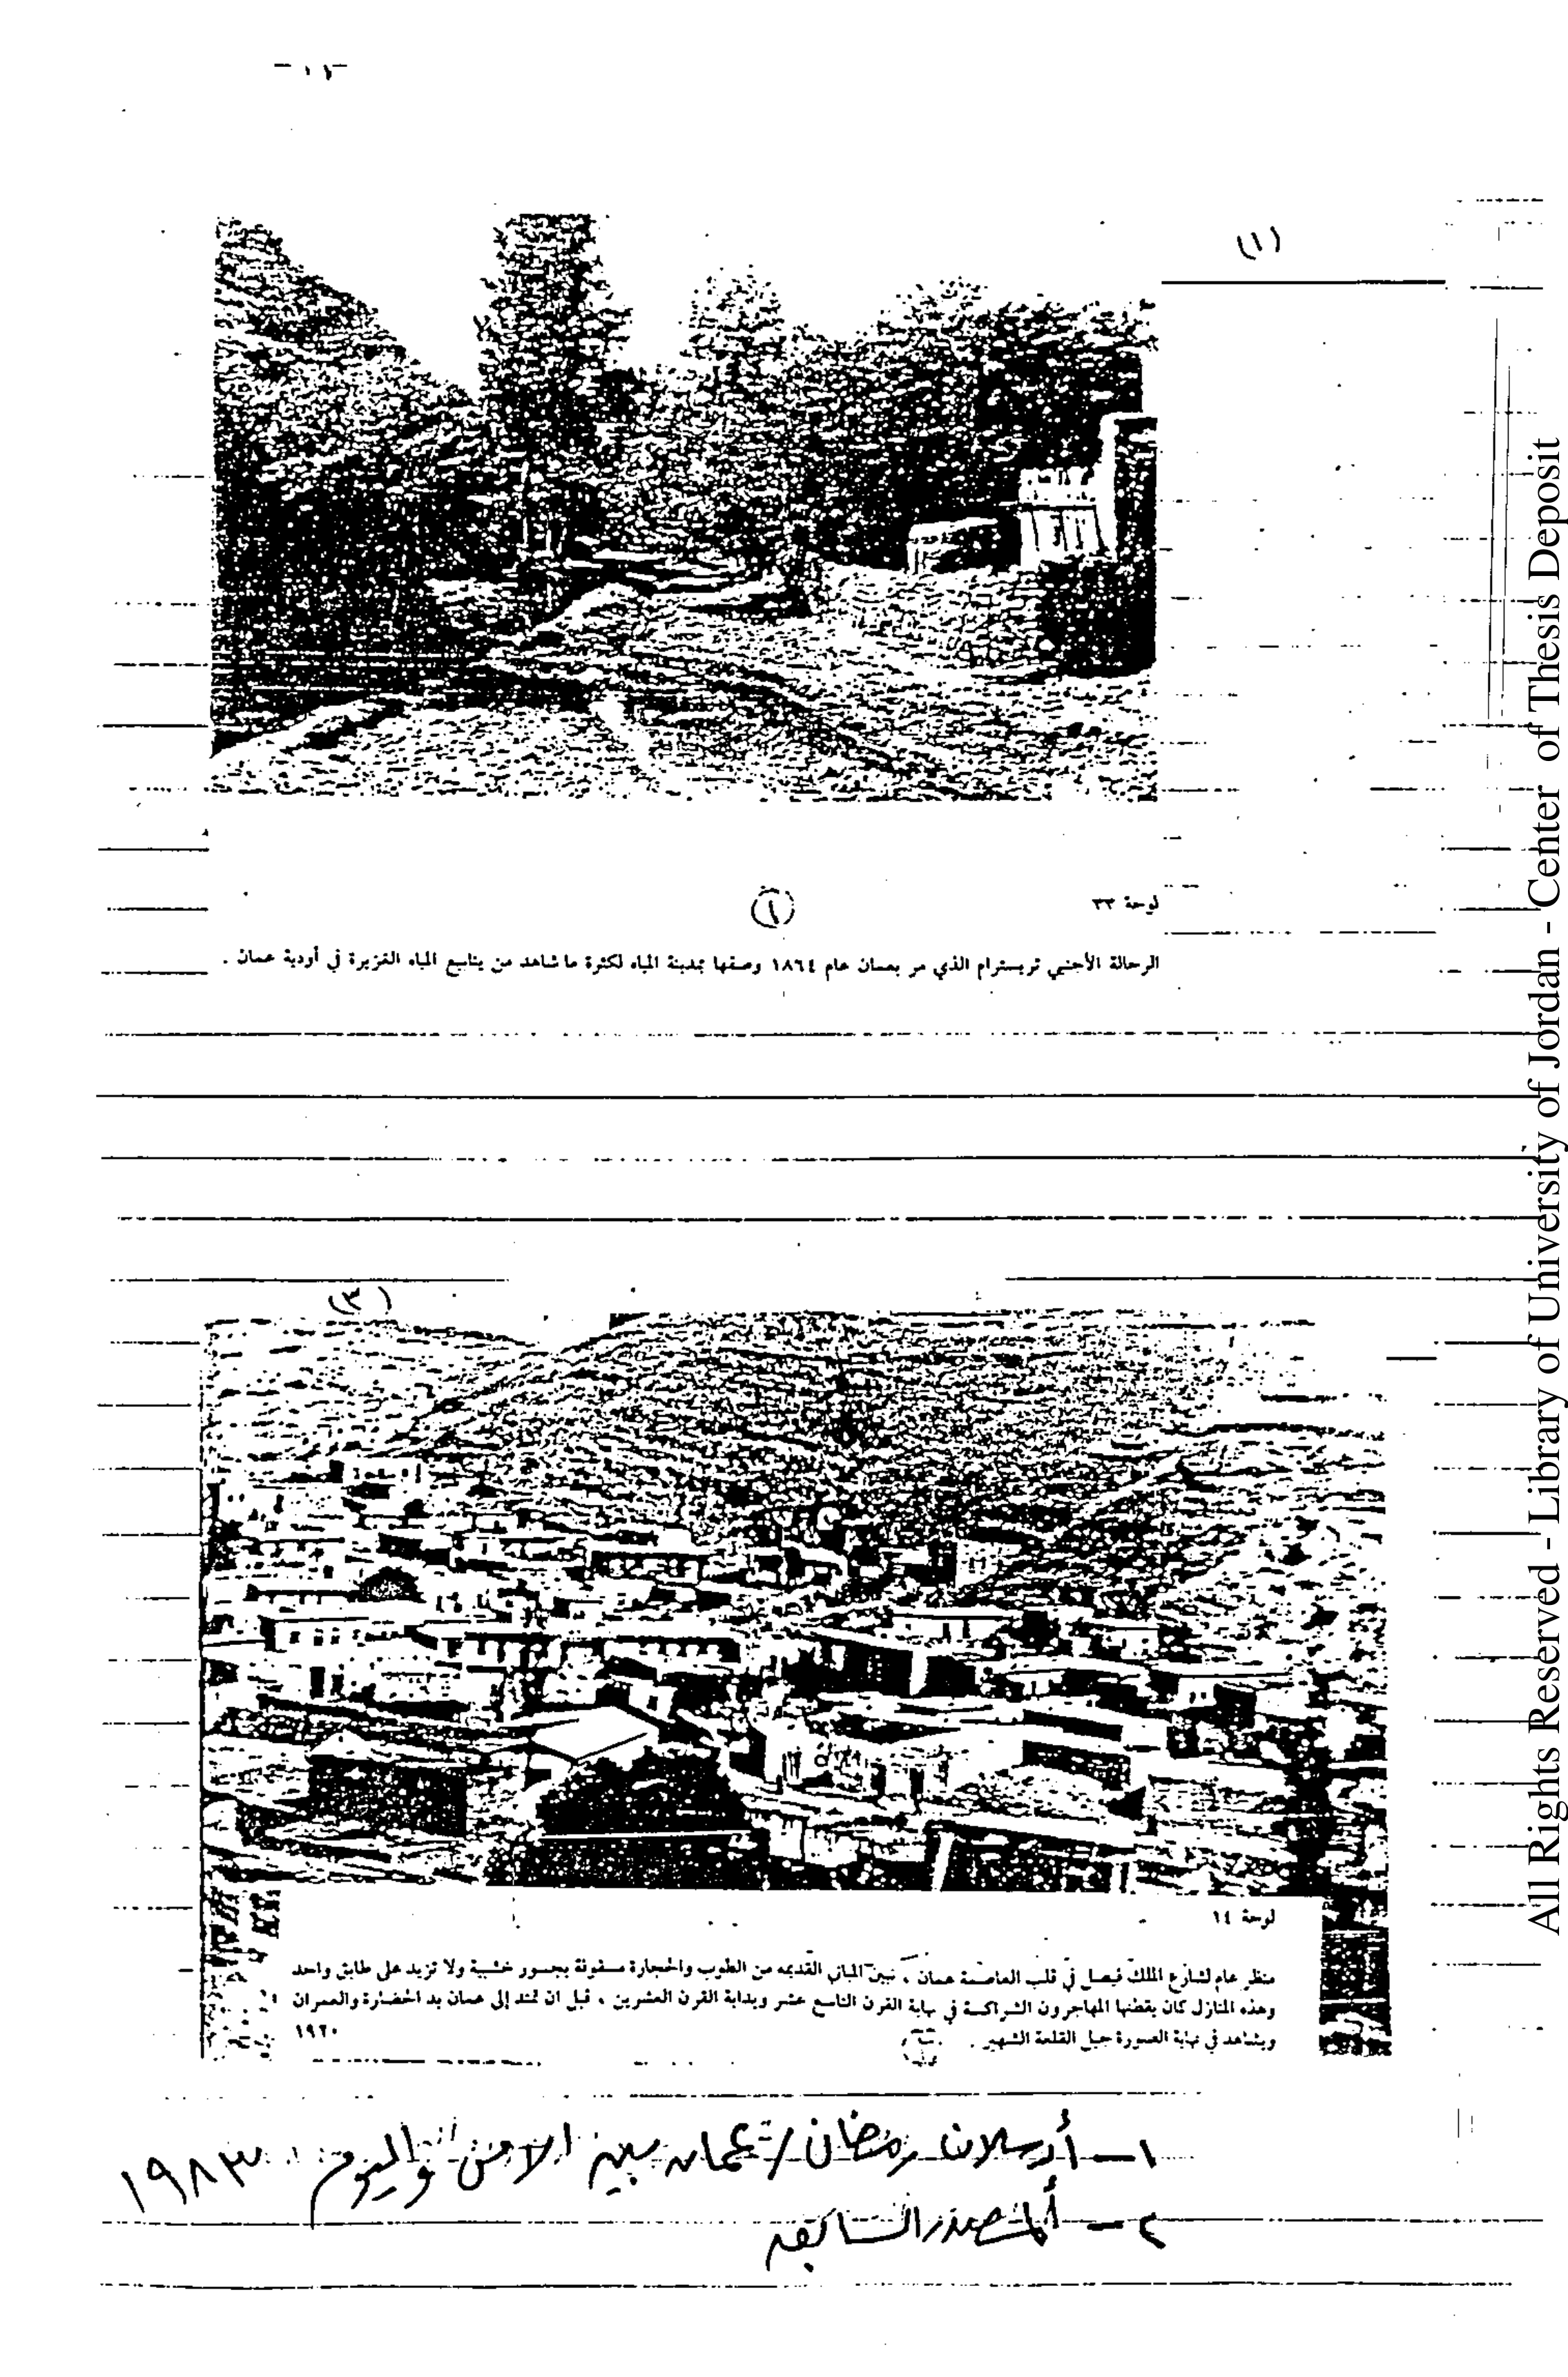 (١)
لوحة ٣٣
(١)
الرحالة الأجنبي تريسترام الذي مر بعمان عام ١٨٦٤ وصفها بمدينة المياه لكثرة ما شاهد من ينابيع المياه الغزيرة في أودية عمان .
(٢)
لوحة ١٤
منظر عام لشارع الملك فيصل في قلب العاصمة عمان ، تبين المباني القديمه من الطوب والحجارة مسقوفة بجسور خشبية ولا تزيد على طابق واحد
وهذه المنازل كان يقطنها المهاجرون الشراكسة في نهاية القرن التاسع عشر وبداية القرن العشرين ، قبل ان تمتد إلى عمان يد الحضارة والعمران
ويشاهد في نهاية الصورة جبل القلعة الشهير . ١٩٢٠
١ - أرسلان رمضان / عمان بين الامس واليوم ١٩٨٣
٢ - المصدر السابق
All Rights Reserved - Library of University of Jordan - Center of Thesis Deposit